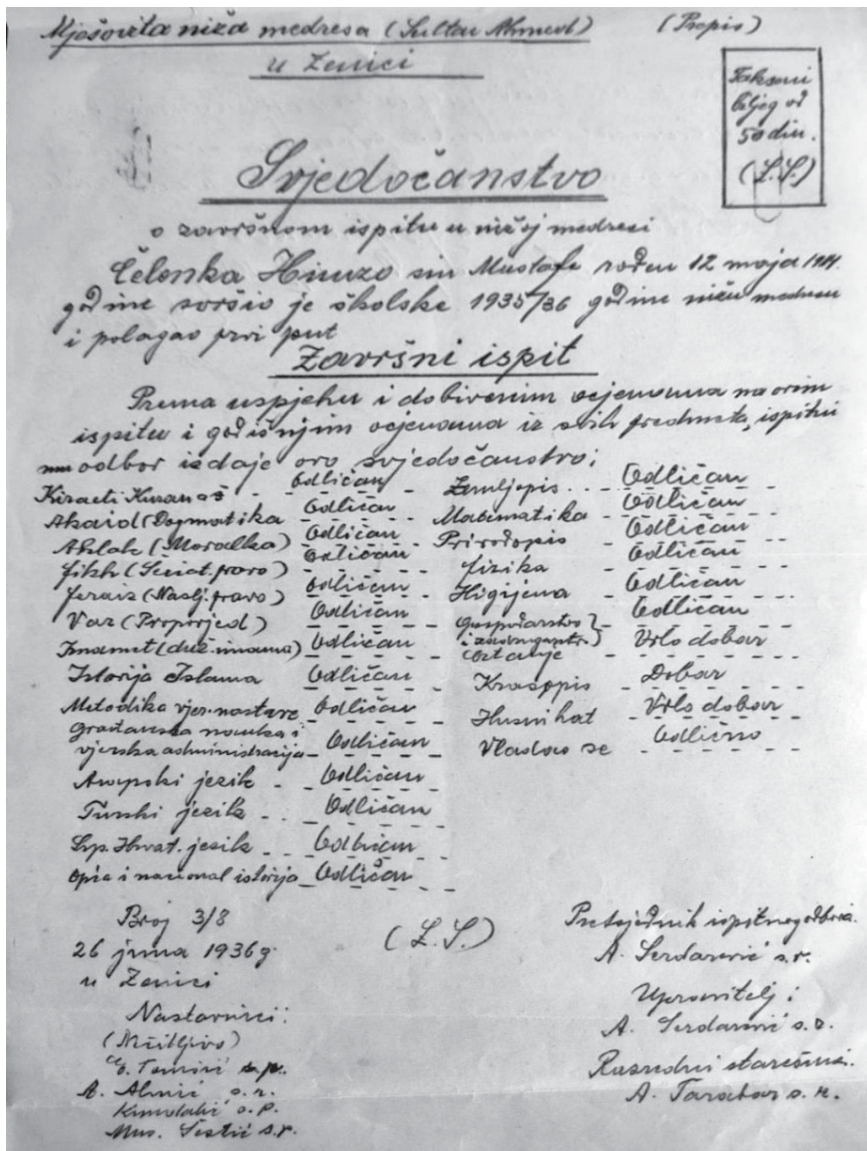 Mješovita niža medresa (Sultan Ahmed) (Prepis)
u Zenici
Takseni
biljeg od
50 din.
(L.S.)
Svjedočanstvo
o završnom ispitu u nižoj medresi
Čelenka Himzo sin Mustafe rođen 12 maja
godine svršio je školske 1935/36 godine nižu medresu
i polagao prvi put
Završni ispit
Prema uspjehu i dobivenim ocjenama na ovim
ispitu i godišnjim ocjenama iz svih predmeta, ispitni
odbor izdaje ovo svjedočanstvo:
Odličan
Akaid (Dogmatika Odličan
Ahlak (Moralka) Odličan
Fikh (Šeriat. pravo) Odličan
Feraiz (Naslj. pravo) Odličan
Vaz (Propovjed) Odličan
Imamet (duž. imama) Odličan
Istorija Islama Odličan
Metodika vjer. nastave Odličan
Građanska nauka i
vjerska administracija Odličan
Arapski jezik Odličan
Turski jezik Odličan
Srp. Hrvat. jezik Odličan
Opća i nacional istorija Odličan
Zemljopis Odličan
Matematika Odličan
Prirodopis Odličan
Fizika Odličan
Higijena Odličan
Gospodarstvo Odličan
i zadrugarstv.)
Crtanje Vrlo dobar
Krasopis Dobar
Husni hat Vrlo dobar
Vladao se Odlično
Broj 3/8
26 juna 1936 g.
u Zenici
(L.S.)
Nastavnici:
A. s.r.
s.p.
Mus. Šestić s.r.
Pretsjednik ispitnog odbora.
A. Serdarević s.r.
Upravitelj:
A. Serdarević s.r.
Razredni starešina.
A. Tarabar s.r.